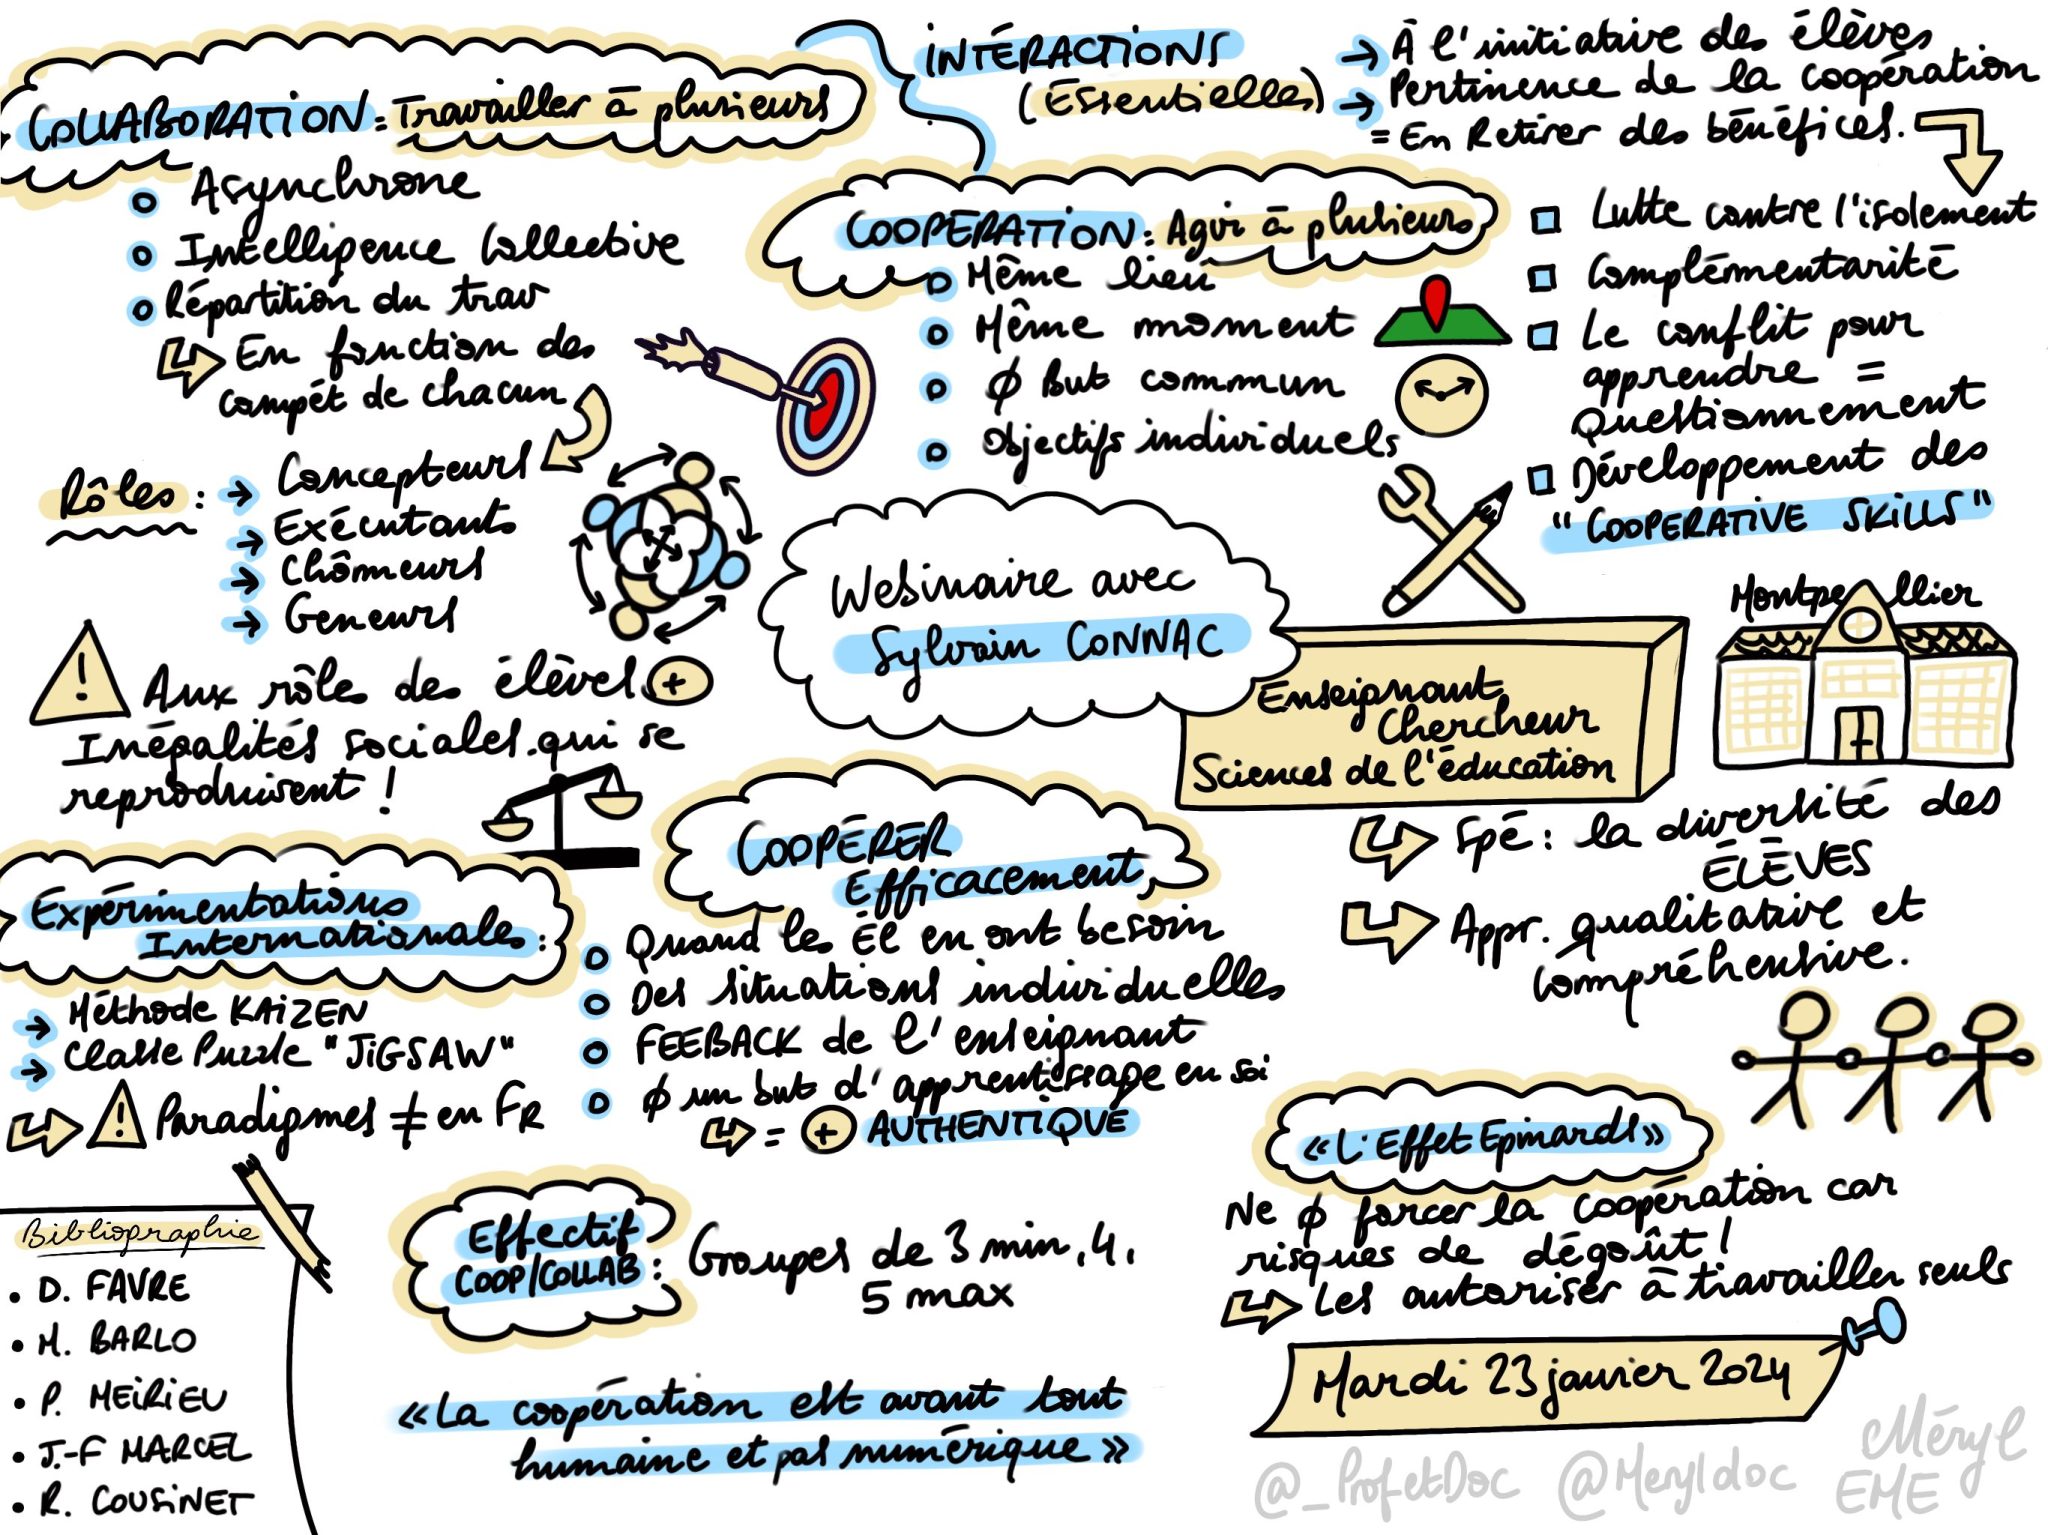 COLLABORATION : Travailler à plusieurs
Asynchrone
Intelligence Collective
Répartition du trav
En fonction des
compét de chacun
Rôles :
Concepteurs
Exécutants
Chômeurs
Geneurs
! Aux rôle des élèves +
Inégalités sociales qui se
reproduisent !
INTÉRACTIONS
(Essentielles)
À l'initiative des élèves
Pertinence de la coopération
= En Retirer des bénéfices.
COOPÉRATION : Agir à plusieurs
Même lieu
Même moment
∅ But commun
Objectifs individuels
Lutte contre l'isolement
Complémentarité
Le conflit pour
apprendre =
Questionnement
Développement des
"COOPERATIVE SKILLS"
Webinaire avec
Sylvain CONNAC
Enseignant
Chercheur
Sciences de l'éducation
Montpellier
Spé : la diversité des
ÉLÈVES
Appr. qualitative et
compréhensive.
Expérimentations
Internationales :
Méthode KAIZEN
Classe Puzzle "JIGSAW"
! Paradigmes ≠ en FR
COOPÉRER
Efficacement
Quand les El en ont besoin
Des situations individuelles
FEEBACK de l'enseignant
∅ un but d'apprentissage en soi
= + AUTHENTIQUE
«L'Effet Epinards»
Ne ∅ forcer la coopération car
risques de dégoût !
Les autoriser à travailler seuls
Bibliographie
• D. FAVRE
• M. BARLO
• P. MEIRIEU
• J.-F MARCEL
• R. COUSINET
Effectif
COOP/COLLAB :
Groupes de 3 min, 4,
5 max
«La coopération est avant tout
humaine et pas numérique»
Mardi 23 janvier 2024
@_ProfetDoc @Meryldoc
Méryl
EME